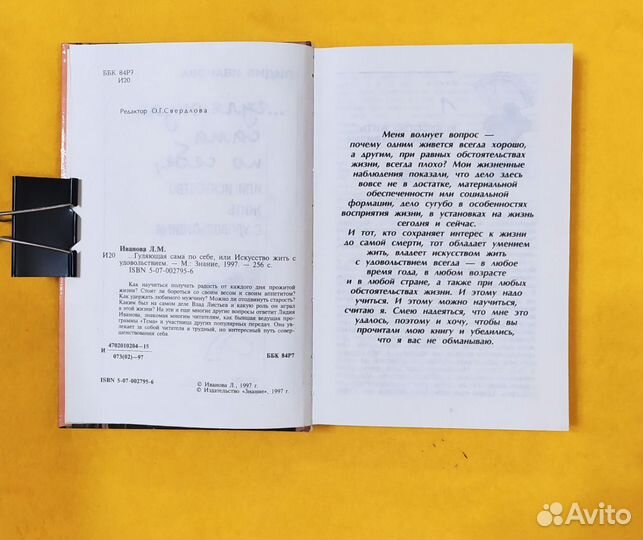 ББК 84Р7
И20
Редактор О.Г.Свердлова
Иванова Л.М.
И20 ...Гуляющая сама по себе, или Искусство жить с
удовольствием. — М.: Знание, 1997. — 256 с.
ISBN 5-07-002795-6
Как научиться получать радость от каждого дня прожитой
жизни? Стоит ли бороться со своим весом и своим аппетитом?
Как удержать любимого мужчину? Можно ли отодвинуть старость?
Каким был на самом деле Влад Листьев и какую роль он играл
в этой жизни? На эти и еще многие другие вопросы ответит Лидия
Иванова, знакомая многим читателям, как бывшая ведущая про-
граммы «Тема» и участница других популярных передач. Она увле-
кает за собой читателя в трудный, но интересный путь совер-
шенствования себя.
И 4702010204—15
073(02)—97
ББК 84Р7
ISBN 5-07-002795-6
© Иванова Л., 1997 г.
© Издательство «Знание», 1997 г.
Меня волнует вопрос —
почему одним живется всегда хорошо,
а другим, при равных обстоятельствах
жизни, всегда плохо? Мои жизненные
наблюдения показали, что дело здесь
вовсе не в достатке, материальной
обеспеченности или социальной
формации, дело сугубо в особенностях
восприятия жизни, в установках на жизнь
сегодня и сейчас.
И тот, кто сохраняет интерес к жизни
до самой смерти, тот обладает умением
жить, владеет искусством жить
с удовольствием всегда — в любое
время года, в любом возрасте
и в любой стране, а также при любых
обстоятельствах. И этому надо
учиться. И этому можно научиться,
считаю я. Смею надеяться, что мне это
удалось, поэтому и хочу, чтобы вы
прочитали мою книгу и убедились,
что я вас не обманываю.
Avito